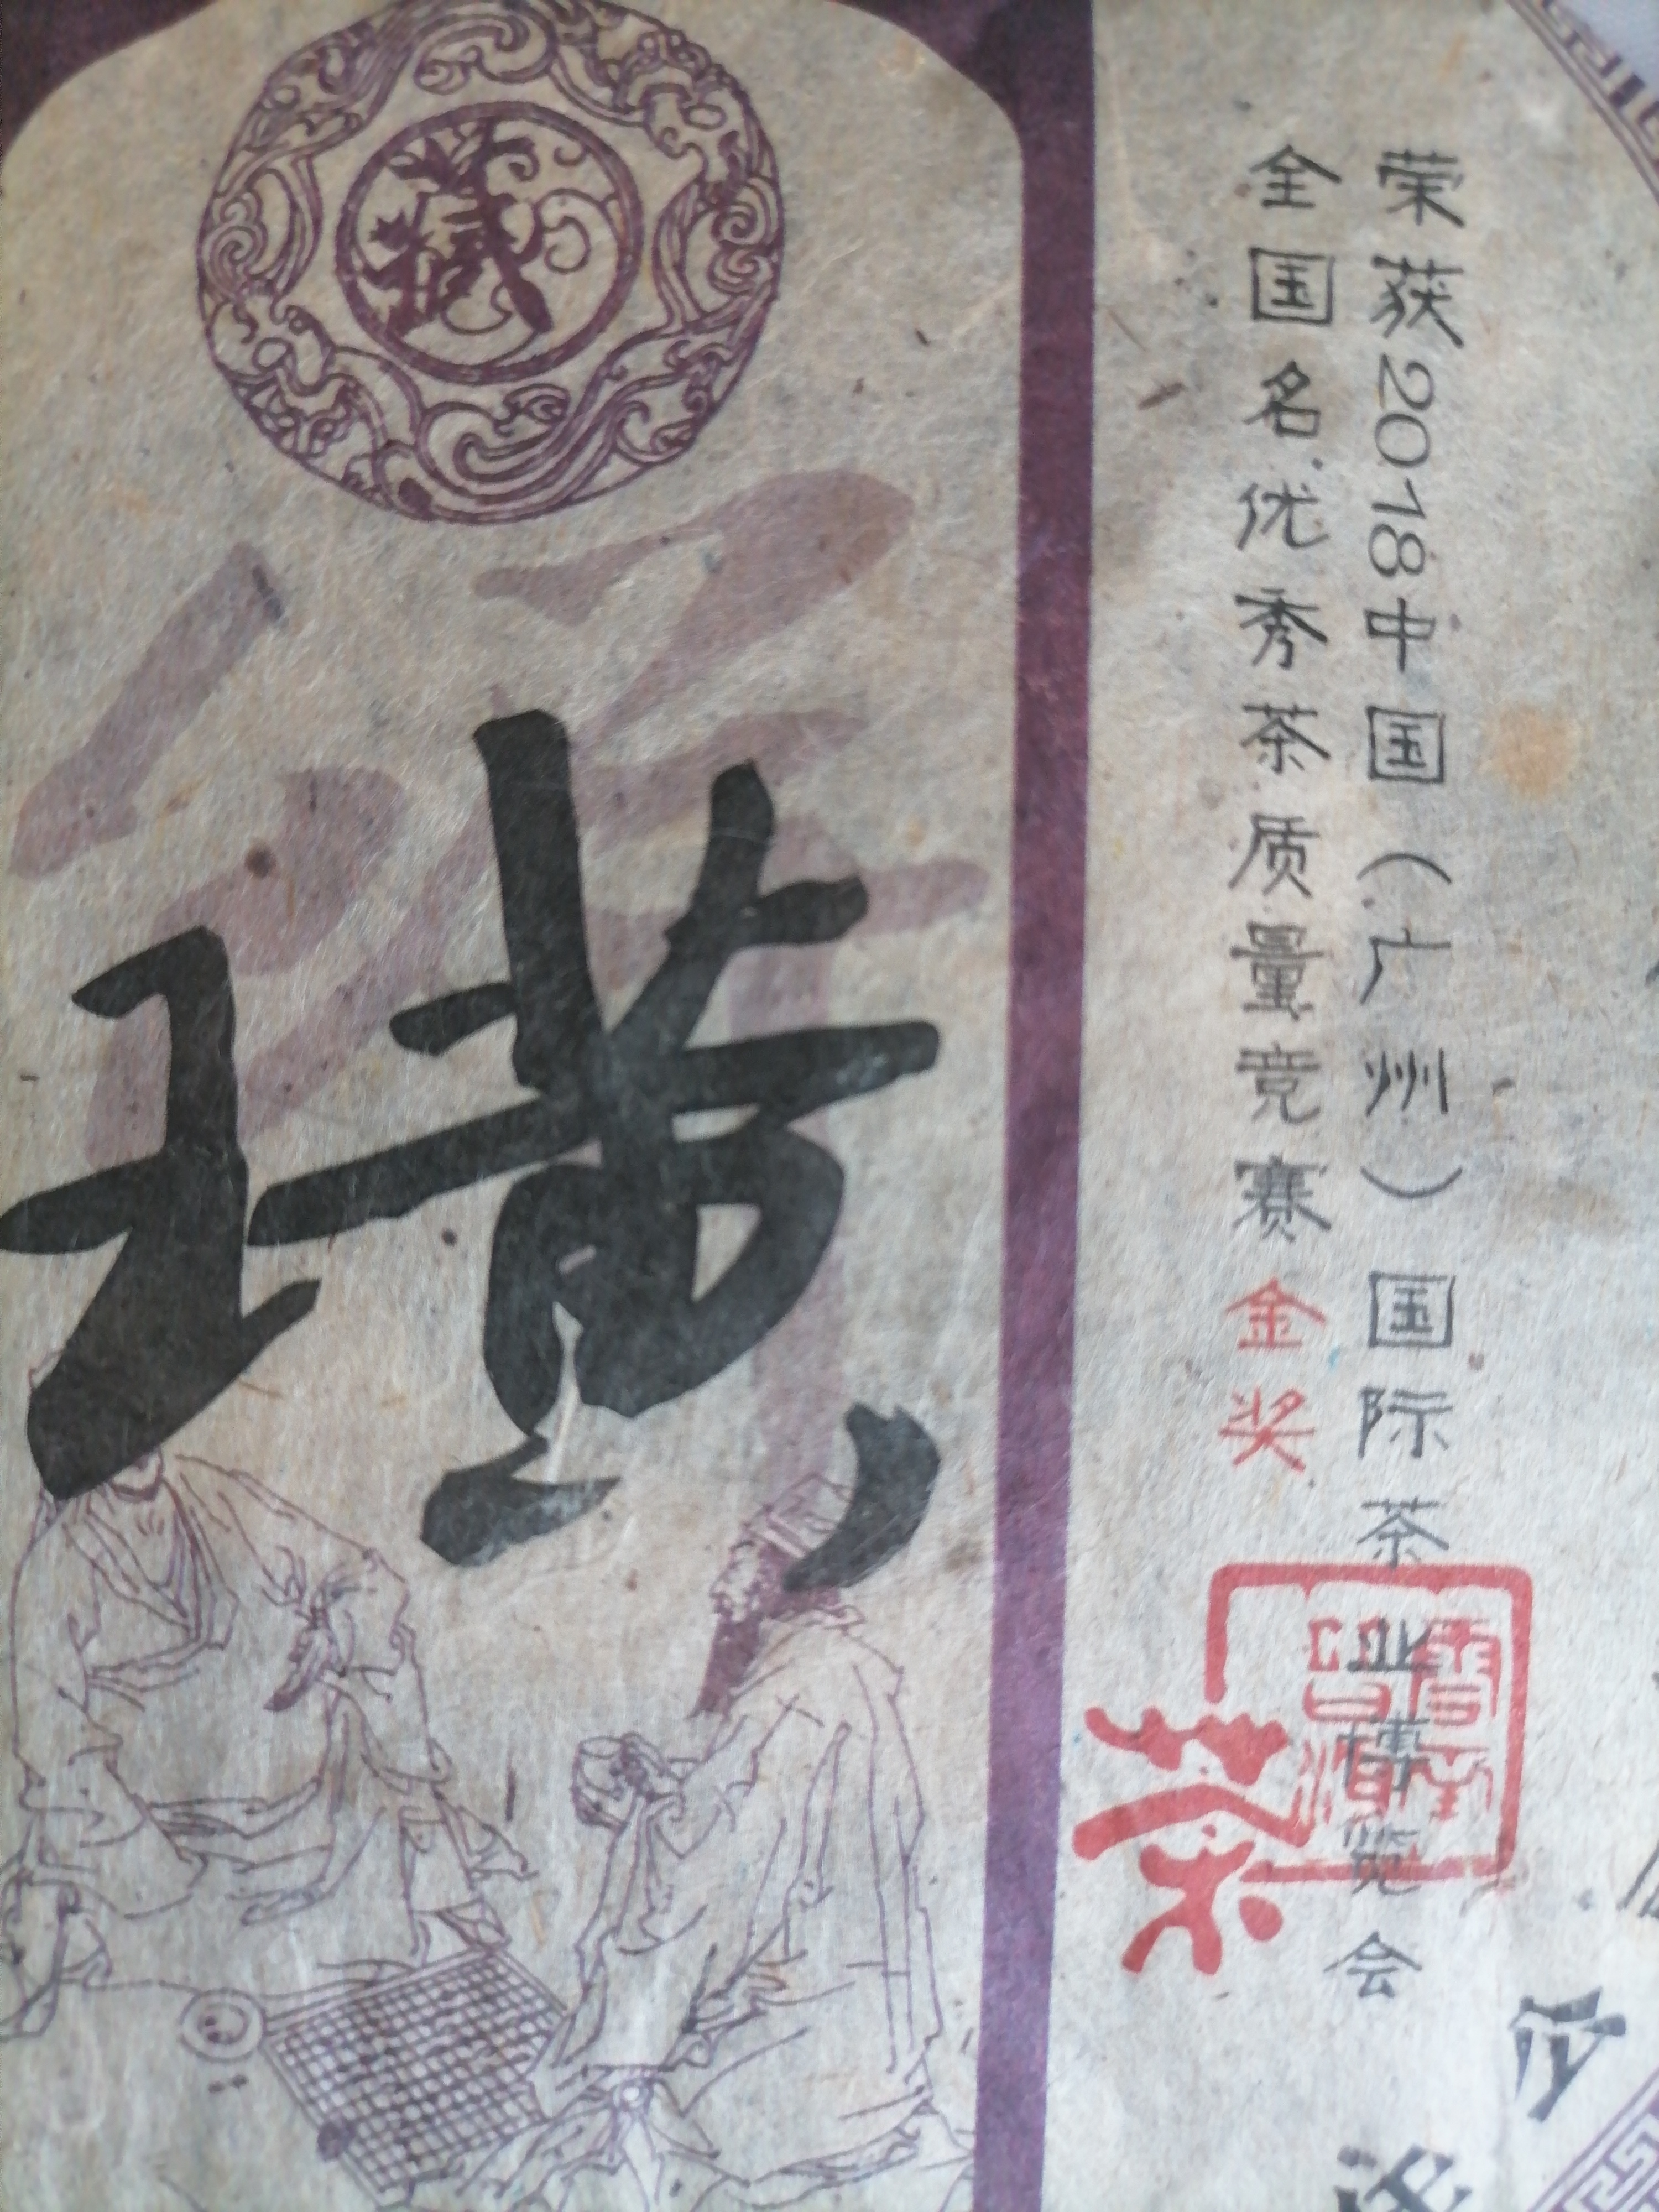 荣获2018中国（广州）国际茶业博览会
全国名优秀茶质量竞赛金奖
茶
藏
璜